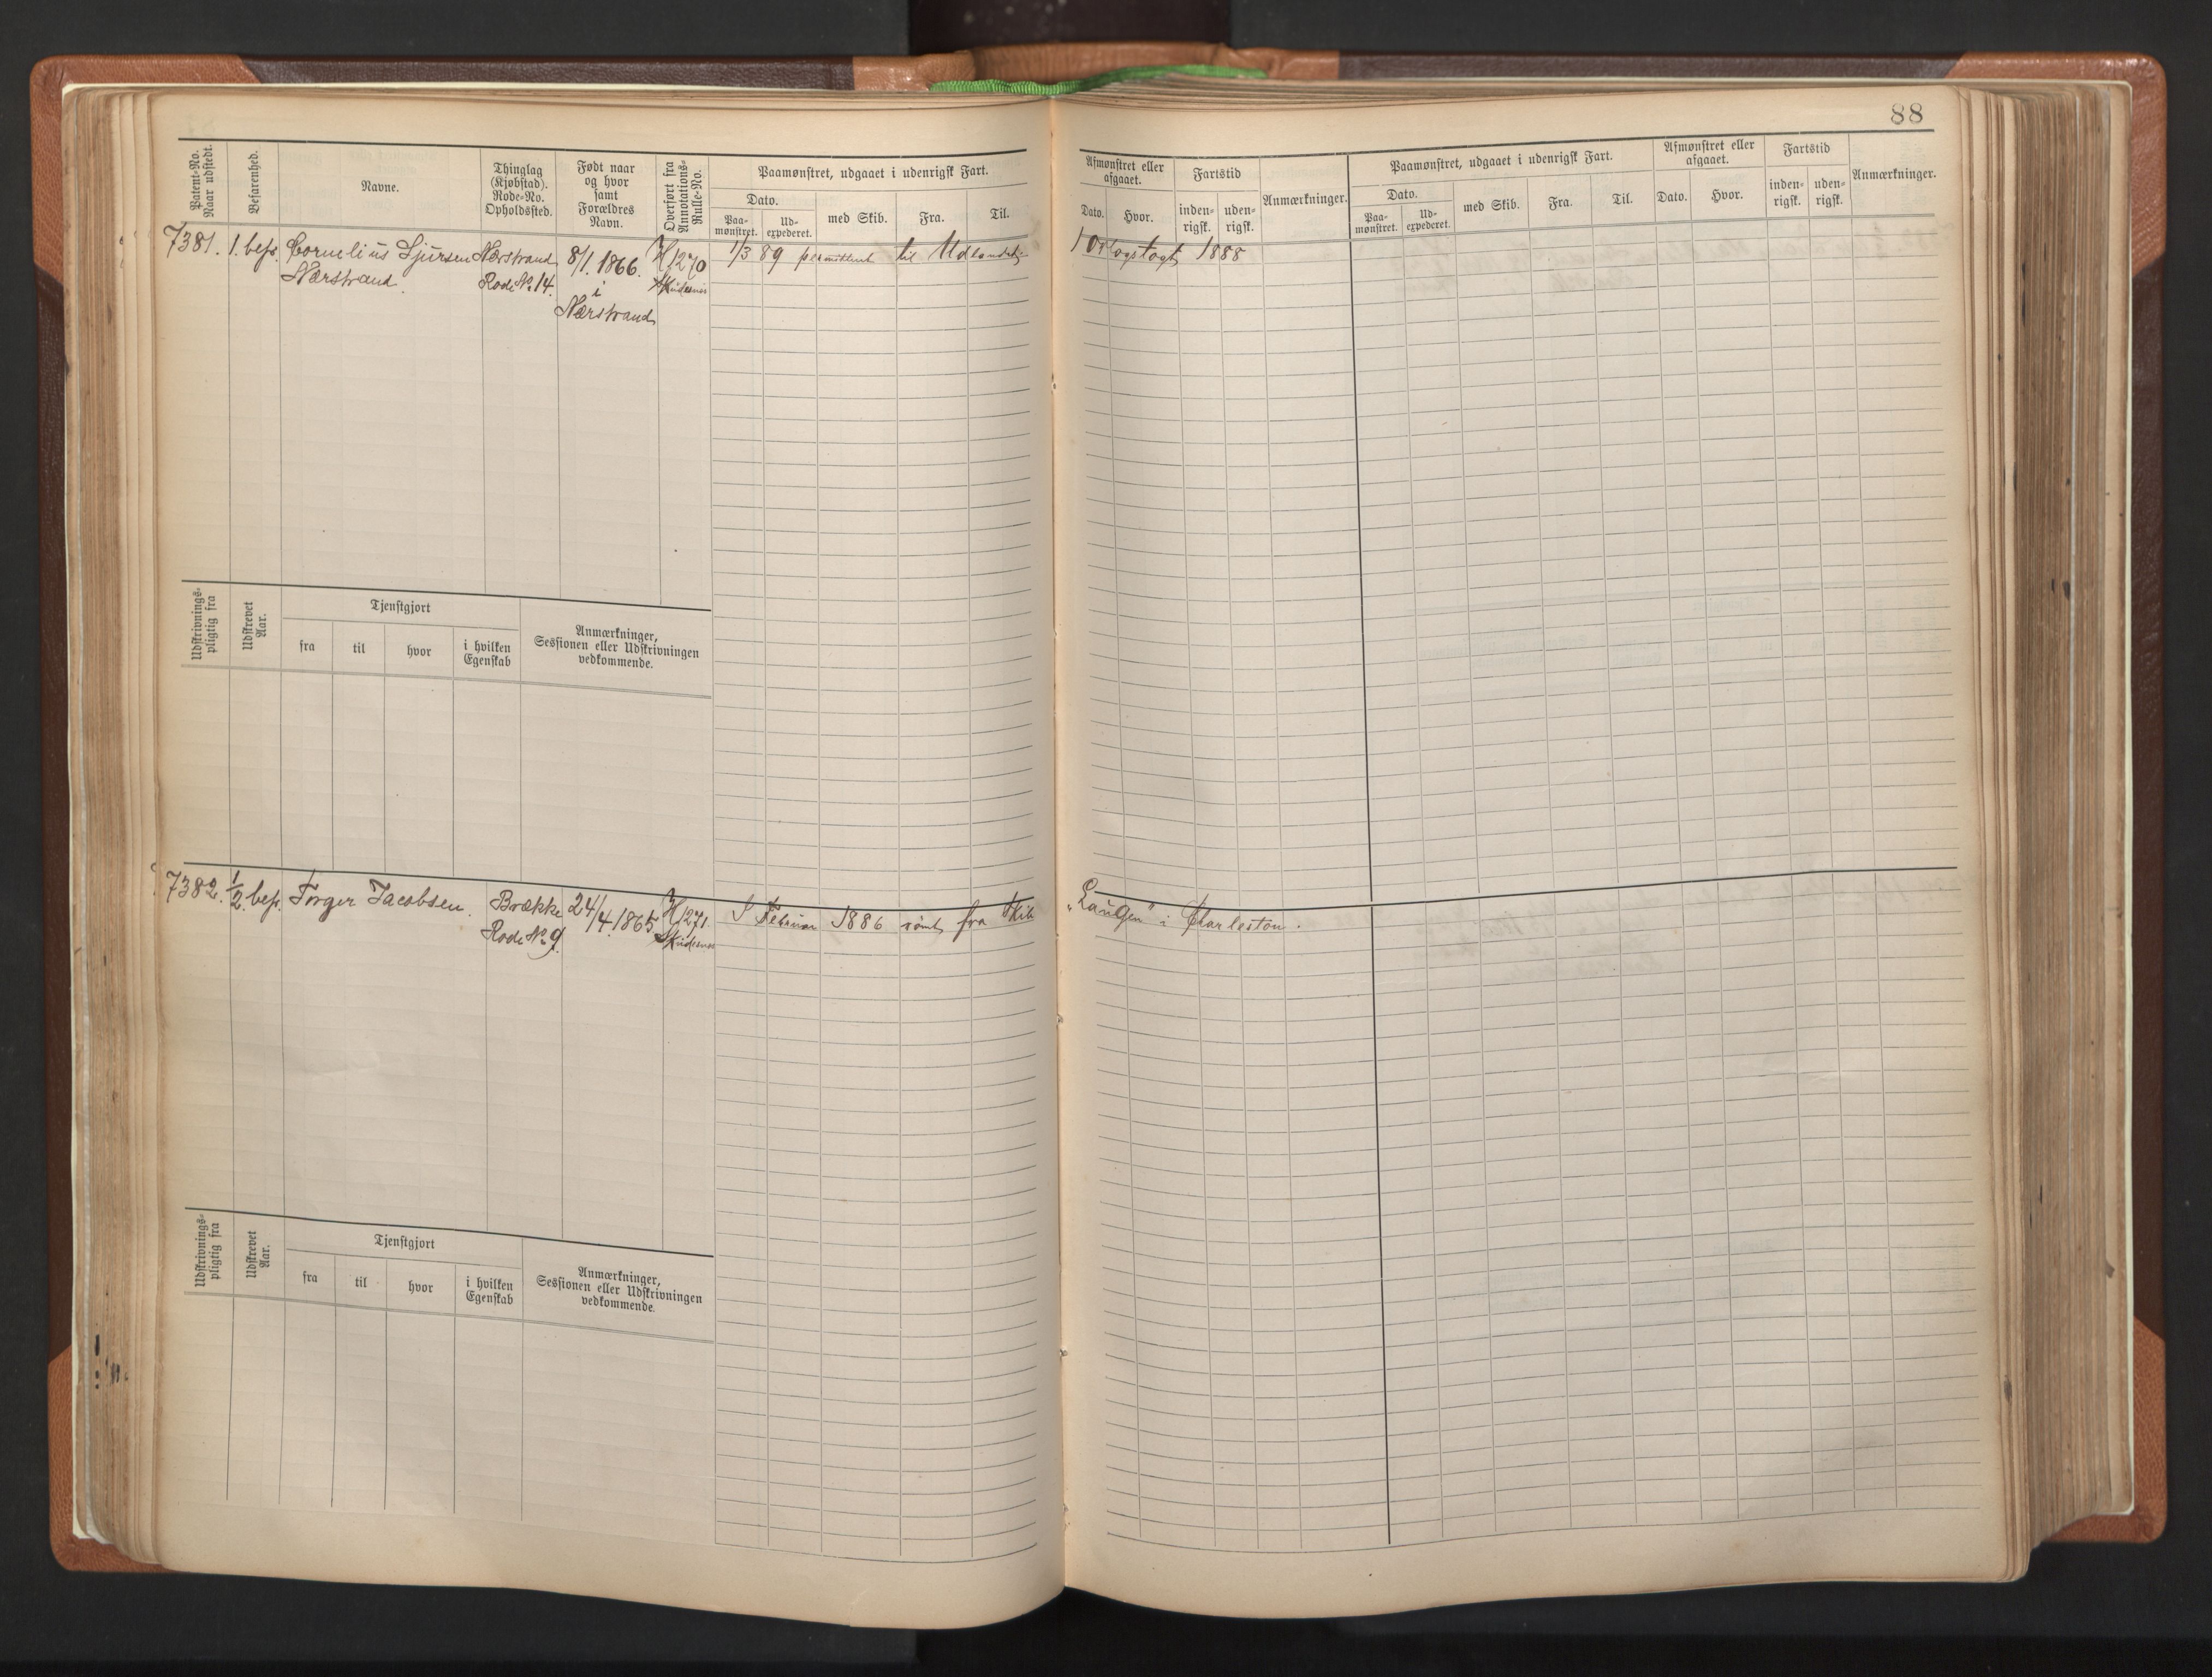 88
Patent-No.
Naar udstedt.
Befarenhed.
Navne.
Thinglag
(Kjøbstad).
Rode-No.
Opholdssted.
Født naar
og hvor
samt
Forældres
Navn.
Overført fra
Annotations-
Rulle-No.
Paamønstret, udgaaet i udenrigsk Fart.
Dato.
Paa-
mønstret.
Ud-
expederet.
med Skib.
Fra.
Til.
Afmønstret eller
afgaaet.
Dato.
Hvor.
Fartstid
inden-
rigsk.
uden-
rigsk.
Anmærkninger.
Paamønstret, udgaaet i udenrigsk Fart.
Dato.
Paa-
mønstret.
Ud-
expederet.
med Skib.
Fra.
Til.
Afmønstret eller
afgaaet.
Dato.
Hvor.
Fartstid
inden-
rigsk.
uden-
rigsk.
Anmærkninger.
7381. 1. bef. Cornelius Sjursen Nærstrand 8/1. 1866. H1270 1/3 89 permittent til Udlandet.
Nærstrand. Rode No. 14. i Skudesnes
Nærstrand
1 Orlogstogt 1888
Udskrivnings-
pligtig fra
Udskrevet
Aar.
Tjenstgjort
fra
til
hvor
i hvilken
Egenskab
Anmærkninger,
Sessionen eller Udskrivningen
vedkommende.
7382. 1/2. bef. Torger Jacobsen. Brække 24/4. 1865 H1271. I Februar 1886 rømt fra Skib
Rode No. 9. Skudesnes
„Laugen" i Charleston.
Udskrivnings-
pligtig fra
Udskrevet
Aar.
Tjenstgjort
fra
til
hvor
i hvilken
Egenskab
Anmærkninger,
Sessionen eller Udskrivningen
vedkommende.